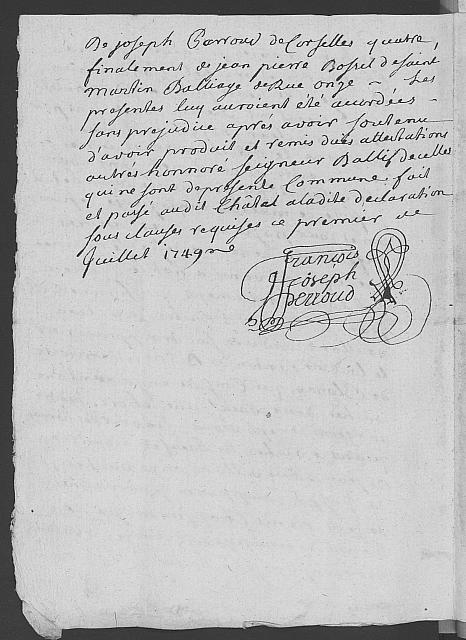 De joseph Garroud de Corselles quatre,
finalement de jean pierre Bossel de Saint
martin Balliage de Rue onze – Les
presentes luy auroient été acordées –
sans prejudice aprés avoir soutenu
d'avoir produit et remis dües attestations
au trés honnoré seigneur Ballif de celles
qui ne sont de presente Commune. fait
et passé audit Châtel a ladite declaration
sous clauses requises ce premier de
Juillet 1749
François
Joseph
Perroud